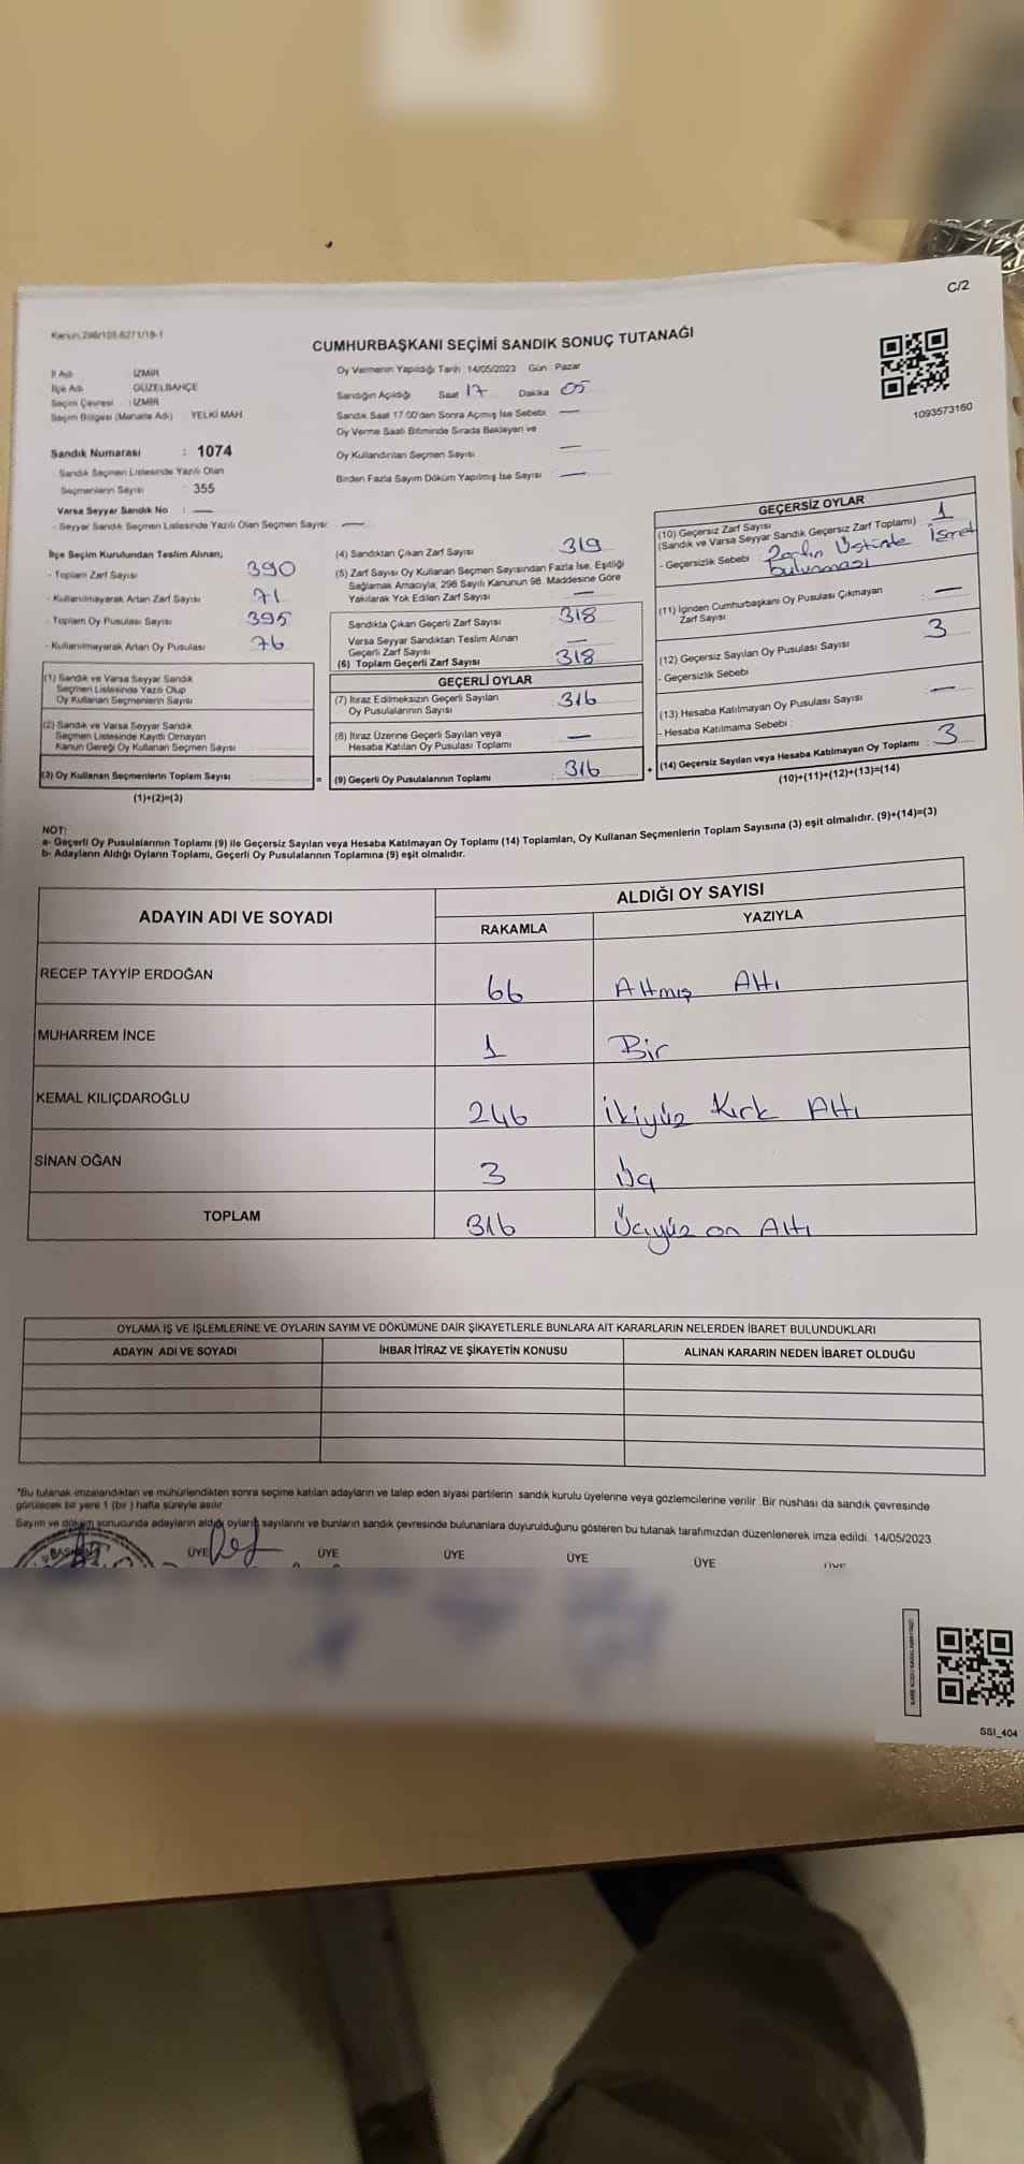 C/2
CUMHURBAŞKANI SEÇİMİ SANDIK SONUÇ TUTANAĞI
1093573160
İl Adı : İZMİR
İlçe Adı : GÜZELBAHÇE
Seçim Çevresi : İZMİR
Seçim Bölgesi (Mahalle Adı) YELKİ MAH
Sandık Numarası : 1074
Sandık Seçmen Listesinde Yazılı Olan
Seçmenlerin Sayısı : 355
Varsa Seyyar Sandık No : —
- Seyyar Sandık Seçmen Listesinde Yazılı Olan Seçmen Sayısı : —
Oy Vermenin Yapıldığı Tarih 14/05/2023 Gün Pazar
Sandığın Açıldığı Saat 17 Dakika 05
Sandık Saat 17.00'den Sonra Açılmış İse Sebebi —
Oy Verme Saati Bitiminde Sırada Bekleyen ve
Oy Kullandırılan Seçmen Sayısı —
Birden Fazla Sayım Döküm Yapılmış İse Sayısı —
İlçe Seçim Kurulundan Teslim Alınan;
- Toplam Zarf Sayısı 390
- Kullanılmayarak Artan Zarf Sayısı 71
- Toplam Oy Pusulası Sayısı 395
- Kullanılmayarak Artan Oy Pusulası 76
(1) Sandık ve Varsa Seyyar Sandık
Seçmen Listesinde Yazılı Olup
Oy Kullanan Seçmenlerin Sayısı
(2) Sandık ve Varsa Seyyar Sandık
Seçmen Listesinde Kayıtlı Olmayan
Kanun Gereği Oy Kullanan Seçmen Sayısı
(3) Oy Kullanan Seçmenlerin Toplam Sayısı
(1)+(2)=(3)
(4) Sandıktan Çıkan Zarf Sayısı 319
(5) Zarf Sayısı Oy Kullanan Seçmen Sayısından Fazla İse, Eşitliği
Sağlamak Amacıyla, 298 Sayılı Kanunun 98. Maddesine Göre
Yakılarak Yok Edilen Zarf Sayısı —
Sandıkta Çıkan Geçerli Zarf Sayısı 318
Varsa Seyyar Sandıktan Teslim Alınan
Geçerli Zarf Sayısı —
(6) Toplam Geçerli Zarf Sayısı 318
GEÇERLİ OYLAR
(7) İtiraz Edilmeksizin Geçerli Sayılan
Oy Pusulalarının Sayısı 316
(8) İtiraz Üzerine Geçerli Sayılan veya
Hesaba Katılan Oy Pusulası Toplamı —
= (9) Geçerli Oy Pusulalarının Toplamı 316
GEÇERSİZ OYLAR
(10) Geçersiz Zarf Sayısı 1
(Sandık ve Varsa Seyyar Sandık Geçersiz Zarf Toplamı)
- Geçersizlik Sebebi Zarfın Üstünde İşaret
bulunması
(11) İçinden Cumhurbaşkanı Oy Pusulası Çıkmayan
Zarf Sayısı —
(12) Geçersiz Sayılan Oy Pusulası Sayısı 3
- Geçersizlik Sebebi
(13) Hesaba Katılmayan Oy Pusulası Sayısı —
- Hesaba Katılmama Sebebi :
+ (14) Geçersiz Sayılan veya Hesaba Katılmayan Oy Toplamı 3
(10)+(11)+(12)+(13)=(14)
NOT:
a- Geçerli Oy Pusulalarının Toplamı (9) ile Geçersiz Sayılan veya Hesaba Katılmayan Oy Toplamı (14) Toplamları, Oy Kullanan Seçmenlerin Toplam Sayısına (3) eşit olmalıdır. (9)+(14)=(3)
b- Adayların Aldığı Oyların Toplamı, Geçerli Oy Pusulalarının Toplamına (9) eşit olmalıdır.
ADAYIN ADI VE SOYADI ALDIĞI OY SAYISI
RAKAMLA YAZIYLA
RECEP TAYYİP ERDOĞAN 66 Altmış Altı
MUHARREM İNCE 1 Bir
KEMAL KILIÇDAROĞLU 246 İkiyüz Kırk Altı
SİNAN OĞAN 3 Üç
TOPLAM 316 Üçyüz on Altı
OYLAMA İŞ VE İŞLEMLERİNE VE OYLARIN SAYIM VE DÖKÜMÜNE DAİR ŞİKAYETLERLE BUNLARA AİT KARARLARIN NELERDEN İBARET BULUNDUKLARI
ADAYIN ADI VE SOYADI İHBAR İTİRAZ VE ŞİKAYETİN KONUSU ALINAN KARARIN NEDEN İBARET OLDUĞU
*Bu tutanak imzalandıktan ve mühürlendikten sonra seçime katılan adayların ve talep eden siyasi partilerin sandık kurulu üyelerine veya gözlemcilerine verilir. Bir nüshası da sandık çevresinde
görülecek bir yere 1 (bir) hafta süreyle asılır.
Sayım ve döküm sonucunda adayların aldığı oyların sayılarını ve bunların sandık çevresinde bulunanlara duyurulduğunu gösteren bu tutanak tarafımızdan düzenlenerek imza edildi. 14/05/2023
BAŞKAN ÜYE ÜYE ÜYE ÜYE ÜYE ÜYE
SSI_404